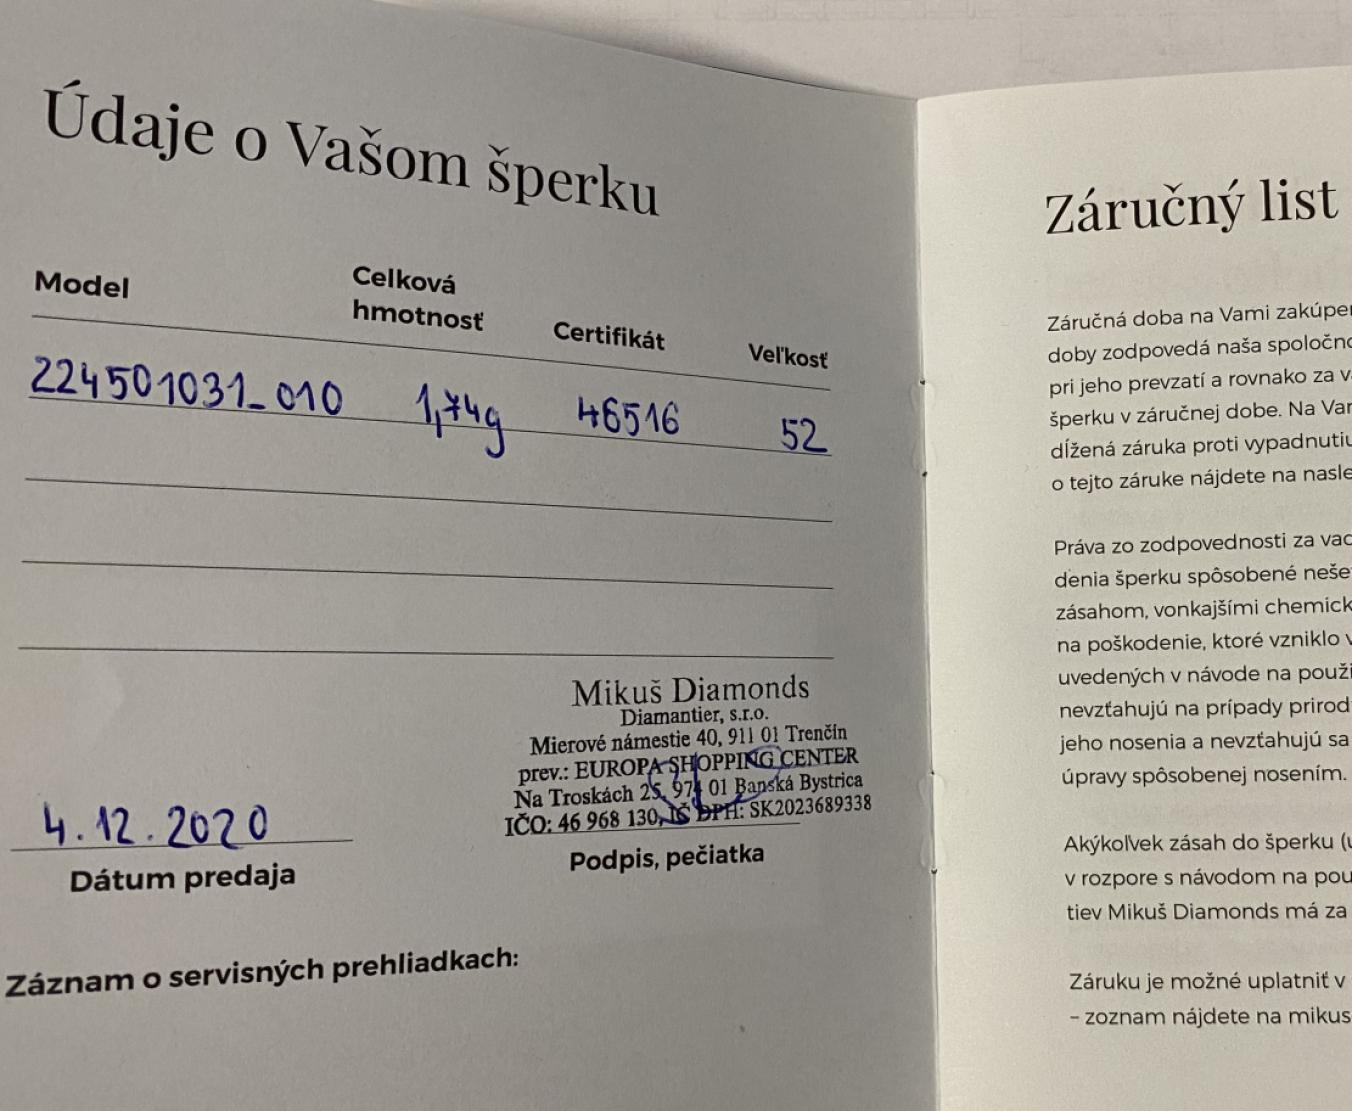 Údaje o Vašom šperku
Model
Celková
hmotnosť
Certifikát
Veľkosť
224501031_010 1,74g 46516 52
Mikuš Diamonds
Diamantier, s.r.o.
Mierové námestie 40, 911 01 Trenčín
prev.: EUROPA SHOPPING CENTER
Na Troskách 25, 974 01 Banská Bystrica
IČO: 46 968 130, IČ DPH: SK2023689338
4.12.2020
Dátum predaja
Podpis, pečiatka
Záznam o servisných prehliadkach:
Záručný list
Záručná doba na Vami zakúpe
doby zodpovedá naša spoločno
pri jeho prevzatí a rovnako za v
šperku v záručnej dobe. Na Va
dĺžená záruka proti vypadnutiu
o tejto záruke nájdete na nasle
Práva zo zodpovednosti za vad
denia šperku spôsobené neše
zásahom, vonkajšími chemick
na poškodenie, ktoré vzniklo v
uvedených v návode na použi
nevzťahujú na prípady prirod
jeho nosenia a nevzťahujú sa
úpravy spôsobenej nosením.
Akýkoľvek zásah do šperku (u
v rozpore s návodom na pou
tiev Mikuš Diamonds má za
Záruku je možné uplatniť v
– zoznam nájdete na mikus